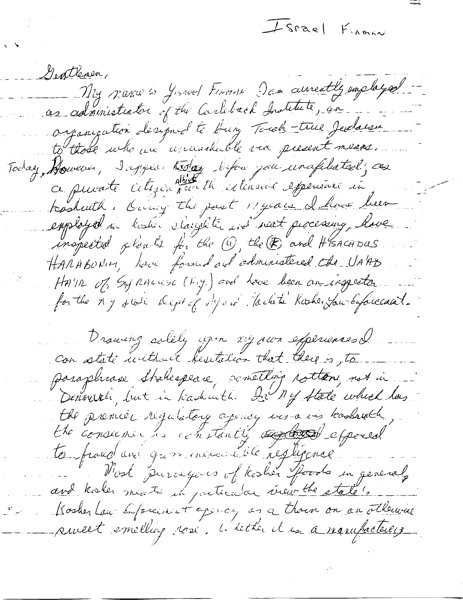 Israel Firman
Gentlemen,
My name is Yisroel Firman I am currently employed
as administrator of the Carlebach Institute, an
organization designed to bring Torah-true Judaism
to those who are unreachable via present means.
Today, However, I appear before you unaffiliated; as
a private citizen with extensive experience in
kashruth. During the past 17 years I have been
employed in kosher slaughter and meat processing, have
inspected plants for the Ⓤ, the Ⓚ and HISACHDUS
HARABONIM, have formed and administered the VAAD
HAIR of SYRACUSE (N.Y.) and have been an inspector
for the NY State Dept of Kosher Law Enforcement.
Drawing solely upon my own experiences I
can state without hesitation that there is, to
paraphrase Shakespeare, something rotten, not in
Denmark, but in kashruth. In NY State which has
the premier regulatory agency vis a vis kashruth,
the consumer is constantly exposed
to fraud and gross inexcusable negligence
Most purveyors of kosher foods in general,
and kosher meats in particular view the state's
Kosher Law Enforcement agency as a thorn on an otherwise
sweet smelling rose. Whether it is a manufacturer